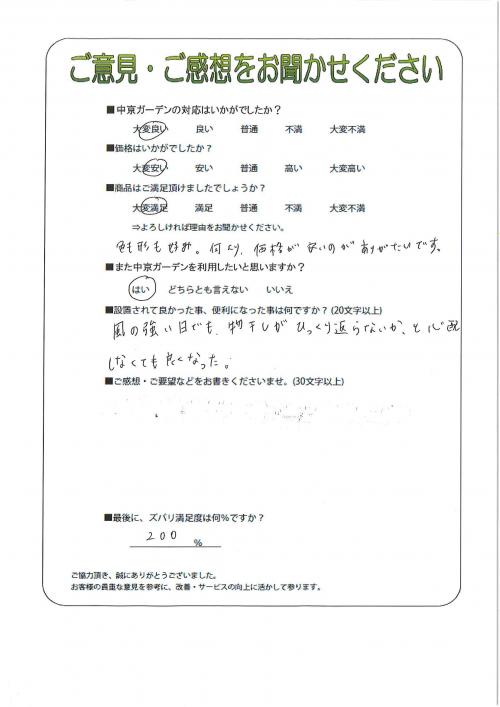 ご意見・ご感想をお聞かせください
■中京ガーデンの対応はいかがでしたか?
大変良い 良い 普通 不満 大変不満
■価格はいかがでしたか?
大変安い 安い 普通 高い 大変高い
■商品はご満足頂けましたでしょうか?
大変満足 満足 普通 不満 大変不満
⇒よろしければ理由をお聞かせください。
色も形も好み。何より、価格が安いのがありがたいです。
■また中京ガーデンを利用したいと思いますか?
はい どちらとも言えない いいえ
■設置されて良かった事、便利になった事は何ですか?(20文字以上)
風の強い日でも、物干しがひっくり返らないか、と心配
しなくても良くなった。
■ご感想・ご要望などをお書きくださいませ。(30文字以上)
■最後に、ズバリ満足度は何%ですか?
200 %
ご協力頂き、誠にありがとうございました。
お客様の貴重な意見を参考に、改善・サービスの向上に活かして参ります。